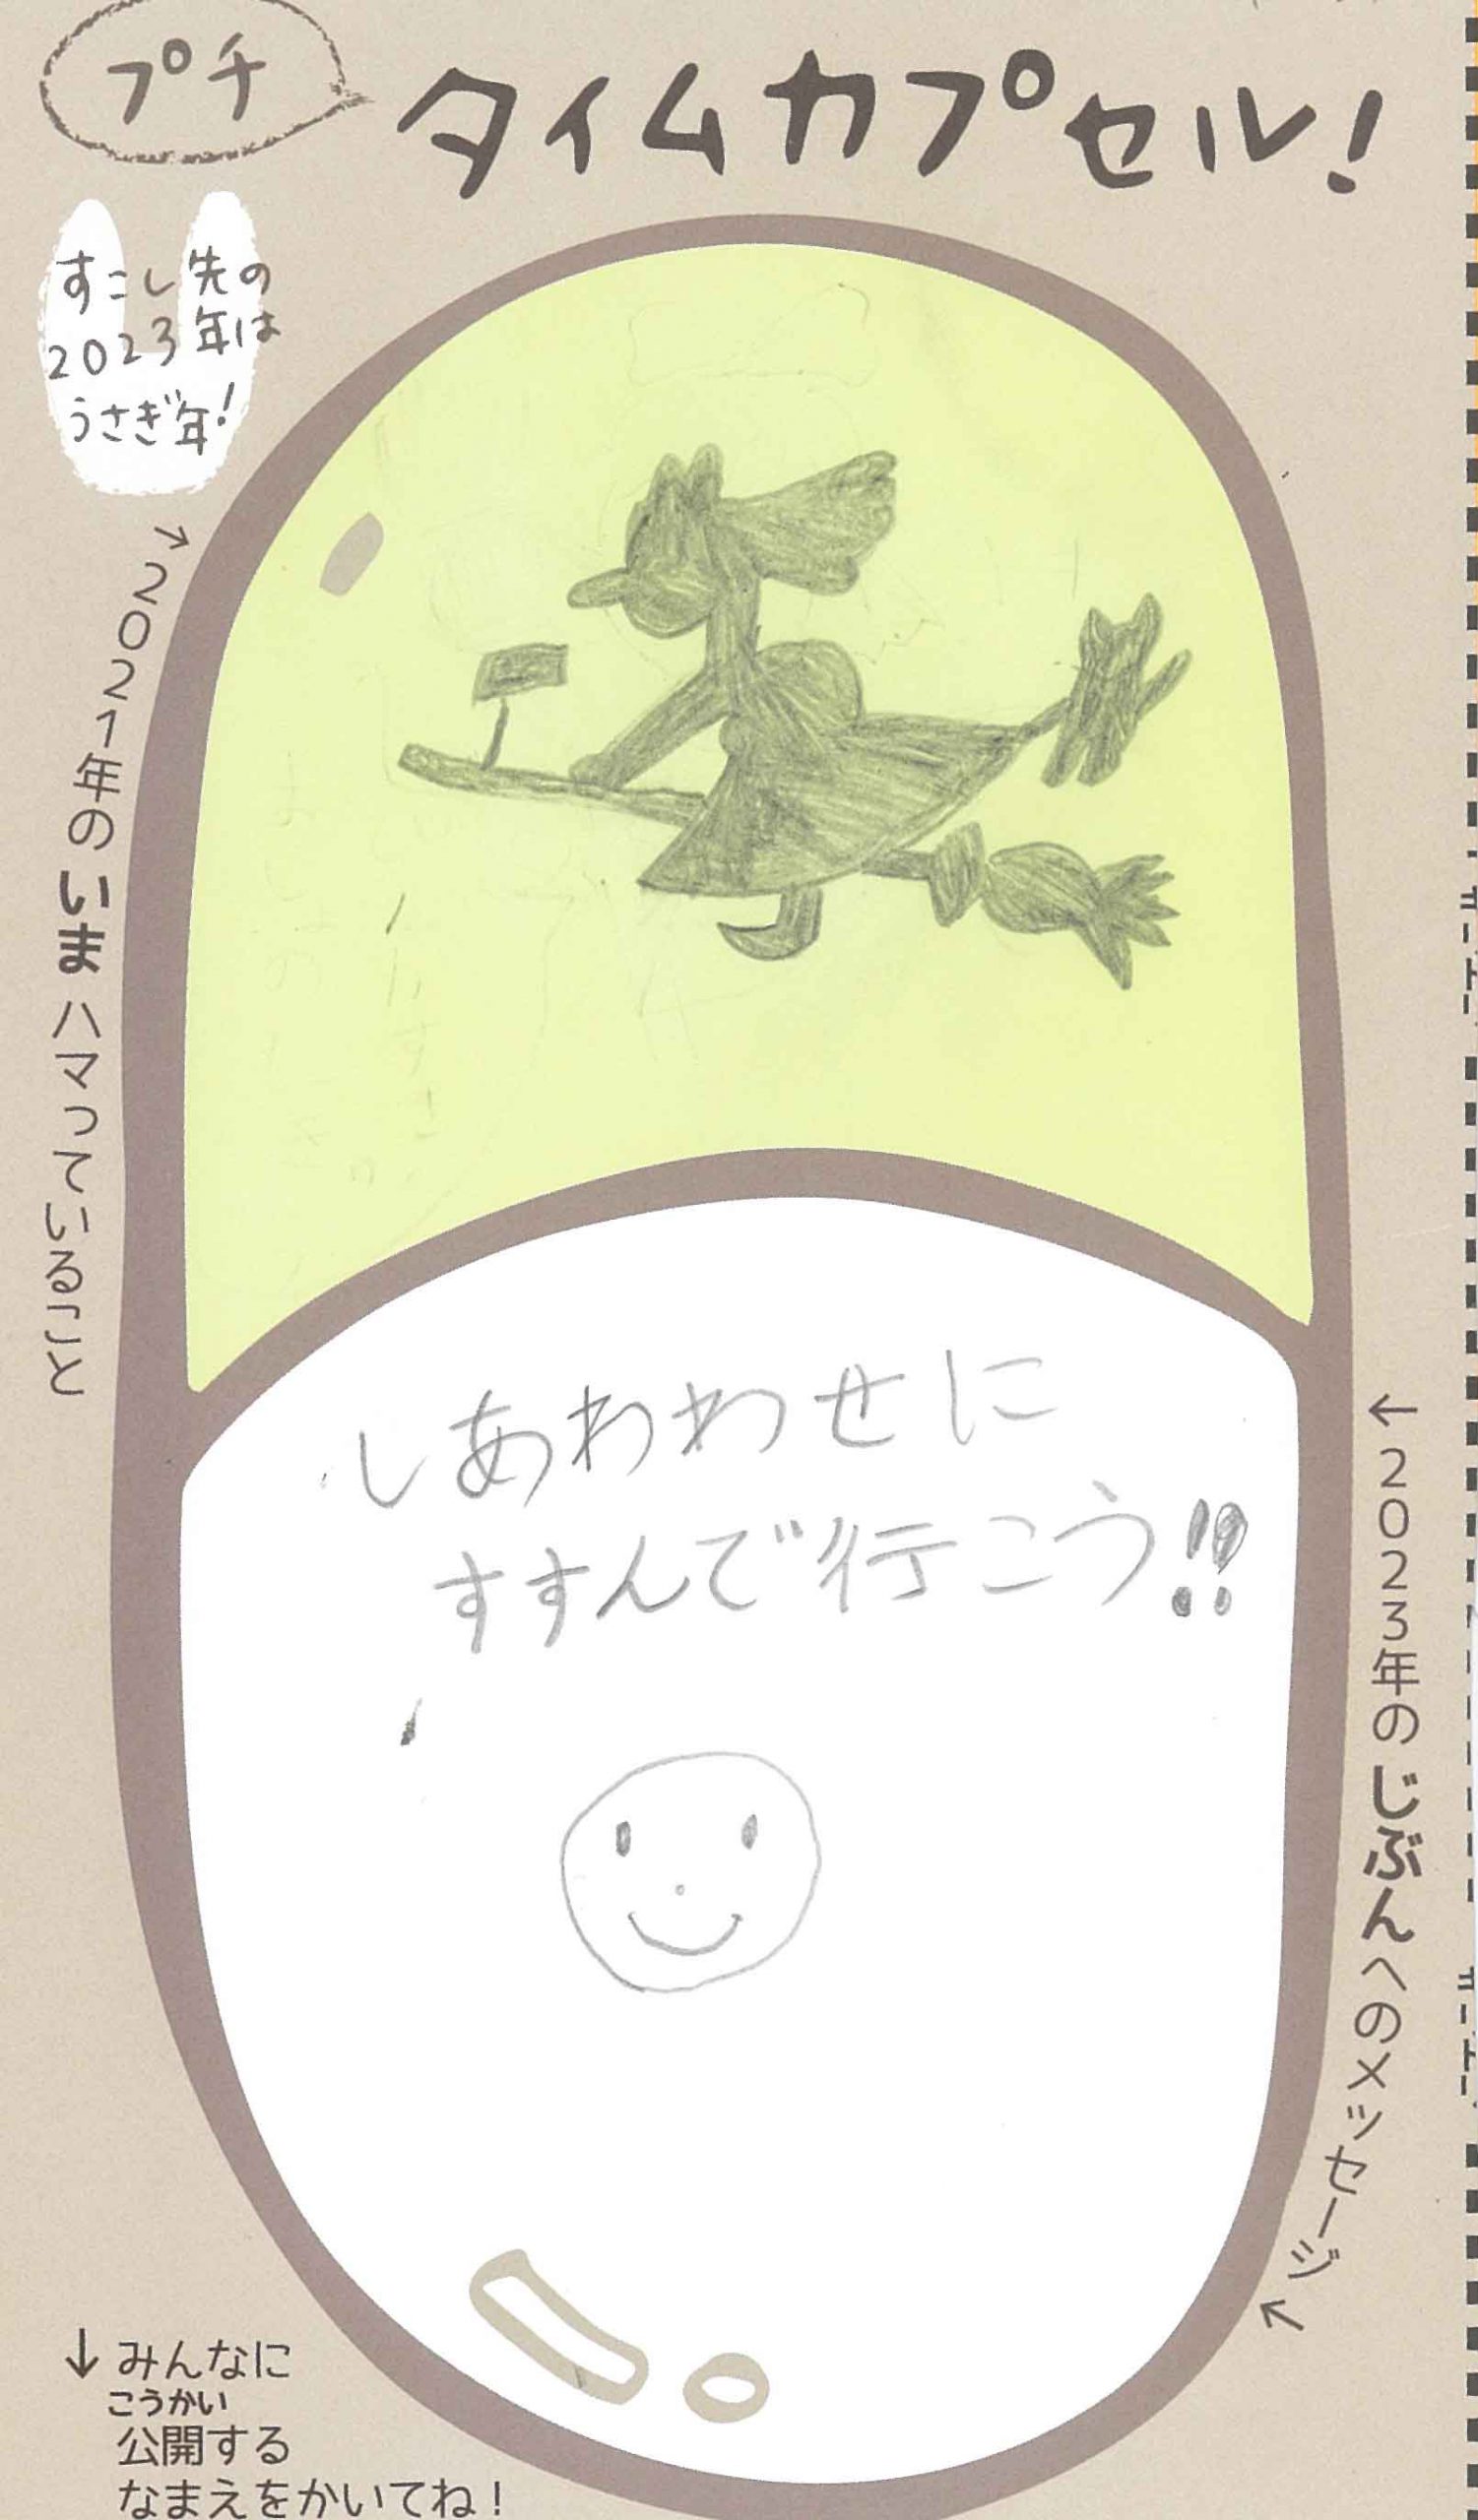 プチ
タイムカプセル!
すこし先の
2023年は
うさぎ年!
→2021年のいまハマっていること
しあわわせに
すすんで行こう!!
←2023年のじぶんへのメッセージ←
↓みんなに
こうかい
公開する
なまえをかいてね!